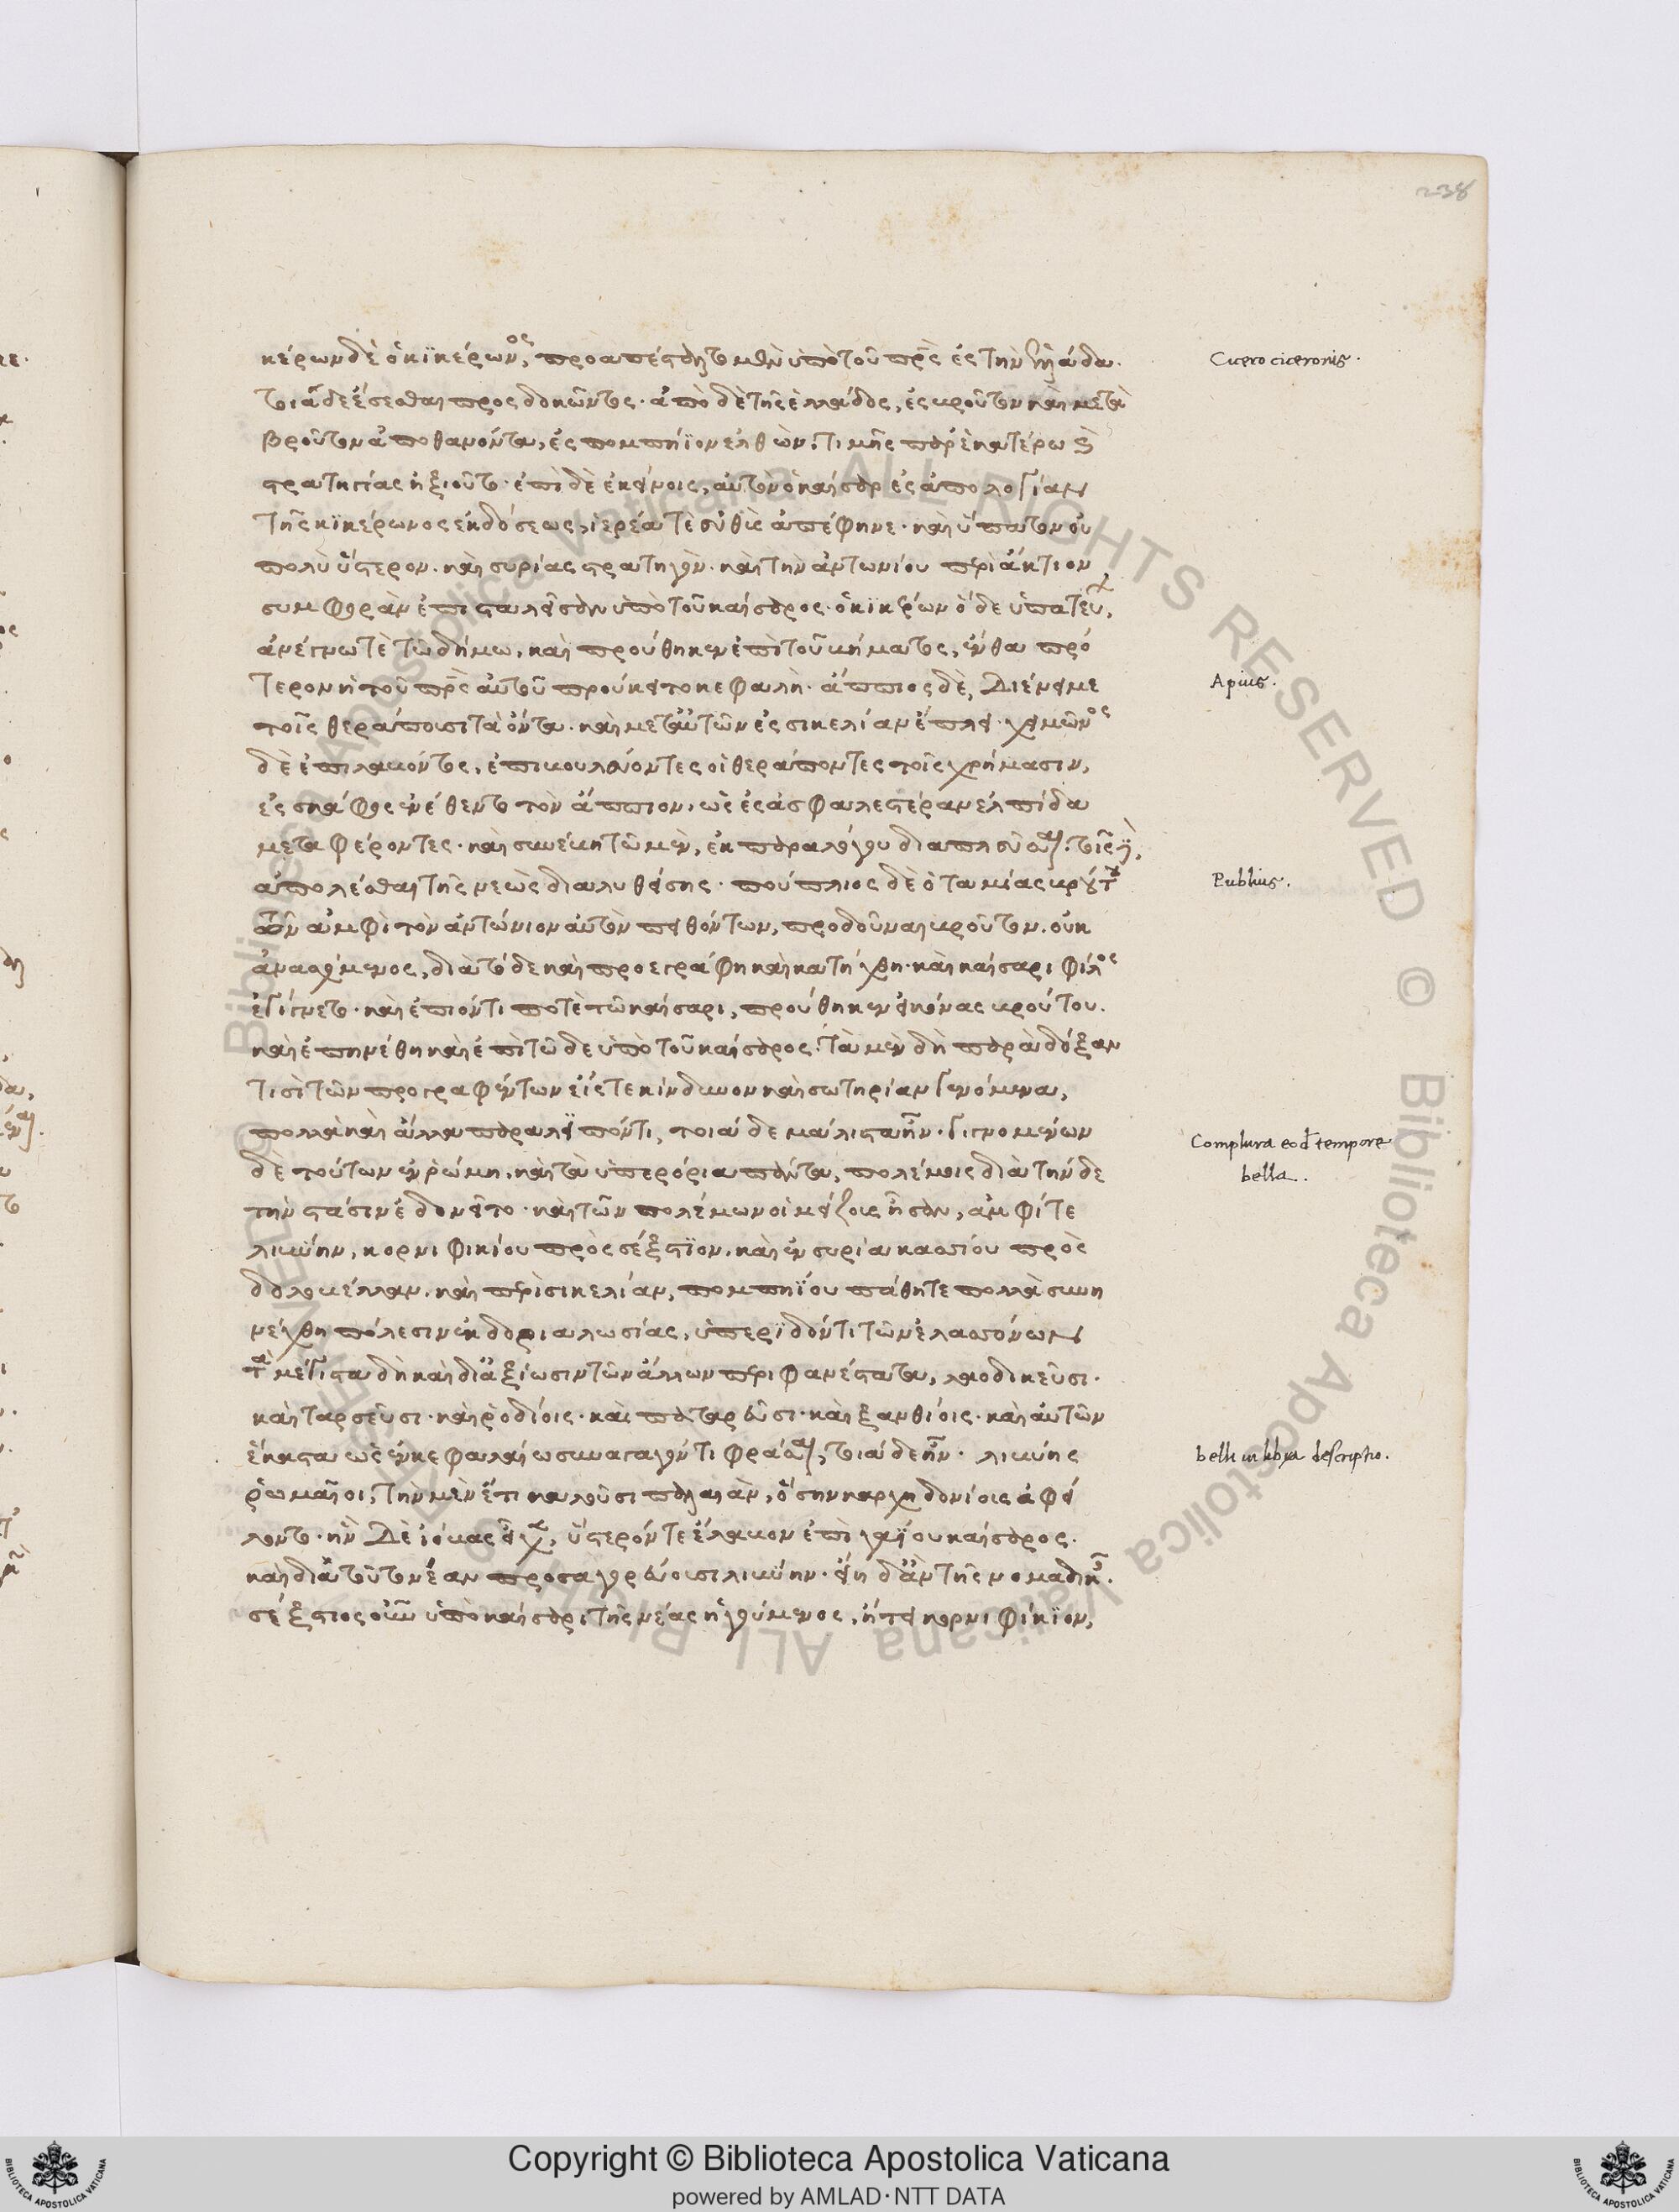 238
κέρων δὲ ὁ κϊκέρωνος, προαπέσταλτο μὲν ὑπὸ τοῦ πρς ἐς τὴν ἑλλάδα.
τοιάδε ἔσεσθαι προσδοκῶντος. ἀπὸ δὲ τῆς ἑλλάδος, ἐς βροῦτον καὶ μετὰ
βροῦτον ἀποθανόντα, ἐς πομπήϊον ἐλθὼν, τιμῆς παρ' ἑκατέρω καὶ
στρατηγίας ἠξιοῦτο. ἐπὶ δὲ ἐκείνοις, αὐτὸν ὁ καῖσαρ ἐς ἀπολογίαν
τῆς κϊκέρωνος ἐκδόσεως, ἱερέα τὲ εὐθὺς ἀπέφηνε. καὶ ὕπατον οὐ
πολὺ ὕστερον. καὶ συρίας στρατηγὸν. καὶ τὴν ἀντωνίου περὶ ἄκτιον
συμφορὰν ἐπισταλεῖσαν ὑπὸ τοῦ καίσαρος. ὁ κϊκέρων ὅδε ὑπατεύων,
ἀνέγνω τὲ τῶ δήμω, καὶ προύθηκεν ἐπὶ τοῦ βήματος, ἔνθα πρό
τερον ἡ τοῦ πρς αὐτοῦ προύκειτο κεφαλὴ. ἄππιος δὲ, διένειμε
τοῖς θεράπουσι τὰ ὄντα. καὶ μετ' αὐτῶν ἐς σικελίαν ἔπλει. χειμῶνος
δὲ ἐπιλαβόντος, ἐπιβουλεύοντες οἱ θεράποντες τοῖς χρήμασιν,
ἐς σκάφος ἐνέθεντο τὸν ἄππιον, ὡς ἐς ἀσφαλεστέραν ἐλπίδα
μεταφέροντες. καὶ συνέβη τῶ μὲν, ἐκ παραλόγου διαπλεῦσαι. τοῖς δὲ,
ἀπολέσθαι τῆς νεὼς διαλυθείσης. πούπλιος δὲ ὁ ταμίας βρούτου
τῶν ἀμφὶ τὸν ἀντώνιον αὐτὸν πειθόντων, προδοῦναι βροῦτον. οὐκ
ἀνασχόμενος, διὰ τόδε καὶ προεγράφη καὶ κατήχθη. καὶ καίσαρι φίλος
ἐγίγνετο. καὶ ἐπιόντι ποτὲ τῶ καίσαρι, προύθηκεν εἰκόνας βρούτου.
καὶ ἐπηνέθη καὶ ἐπὶ τῶδε ὑπὸ τοῦ καίσαρος. τὰ μὲν δὴ παρὰ δόξαν
τισὶ τῶν προγραφέντων εἴς τε κίνδυνον καὶ σωτηρίαν γενόμενα,
πολλὰ καὶ ἄλλα παραλϊπόντι, τοιάδε μάλιστα ἦν. γιγνομένων
δὲ τούτων ἐν ῥώμη. καὶ τὰ ὑπερόρια πάντα, πολέμοις διὰ τήνδε
τὴν στάσιν ἐδονεῖτο. καὶ τῶν πολέμων οἱ μείζους ἦσαν, ἀμφί τε
λιβύην, κορνιφικίου πρὸς σέξστϊον. καὶ ἐν συρία κασσίου πρὸς
δολοβέλλαν. καὶ περὶ σικελίαν, πομπηΐου πάθη τε πολλὰ συνη
νέχθη πόλεσιν ἐκ δοριαλωσίας, ὑπερϊδόντι τῶν ἐλασσόνων
τὰ μέγιστα δὴ καὶ δι' ἀξίωσιν τῶν ἄλλων περιφανέστατα, λαοδικεῦσι.
καὶ ταρσεῦσι. καὶ ῥοδίοις. καὶ παταρεῦσι. καὶ ξανθίοις. καὶ αὐτῶν
ἕκαστα ὡς ἐν κεφαλαίω συναγαγόντι φράσαι, τοιάδε ἦν. λιβύης
ῥωμαῖοι, τὴν μὲν ἔτι καλοῦσι παλαιὰν, ὅσην καρχηδονίοις ἀφεί
λοντο. ἣν δὲ ἰόβας εἶχεν, ὕστερόν τε ἔλαβον ἐπὶ γαΐου καίσαρος.
καὶ διὰ τοῦτο νέαν προσαγορεύουσι λιβύην. εἴη δ' ἂν τῆς νομαδικῆς.
σέξστιος οὖν ὑπὸ καίσαρι τῆς νέας ἡγούμενος, ἤτει κορνιφίκϊον,
Cicero ciceronis.
Apius.
Publius.
Complura eod tempore
bella.
belli in libya descriptio.
Biblioteca Apostolica Vaticana ALL RIGHTS RESERVED ©
Copyright © Biblioteca Apostolica Vaticana
powered by AMLAD·NTT DATA